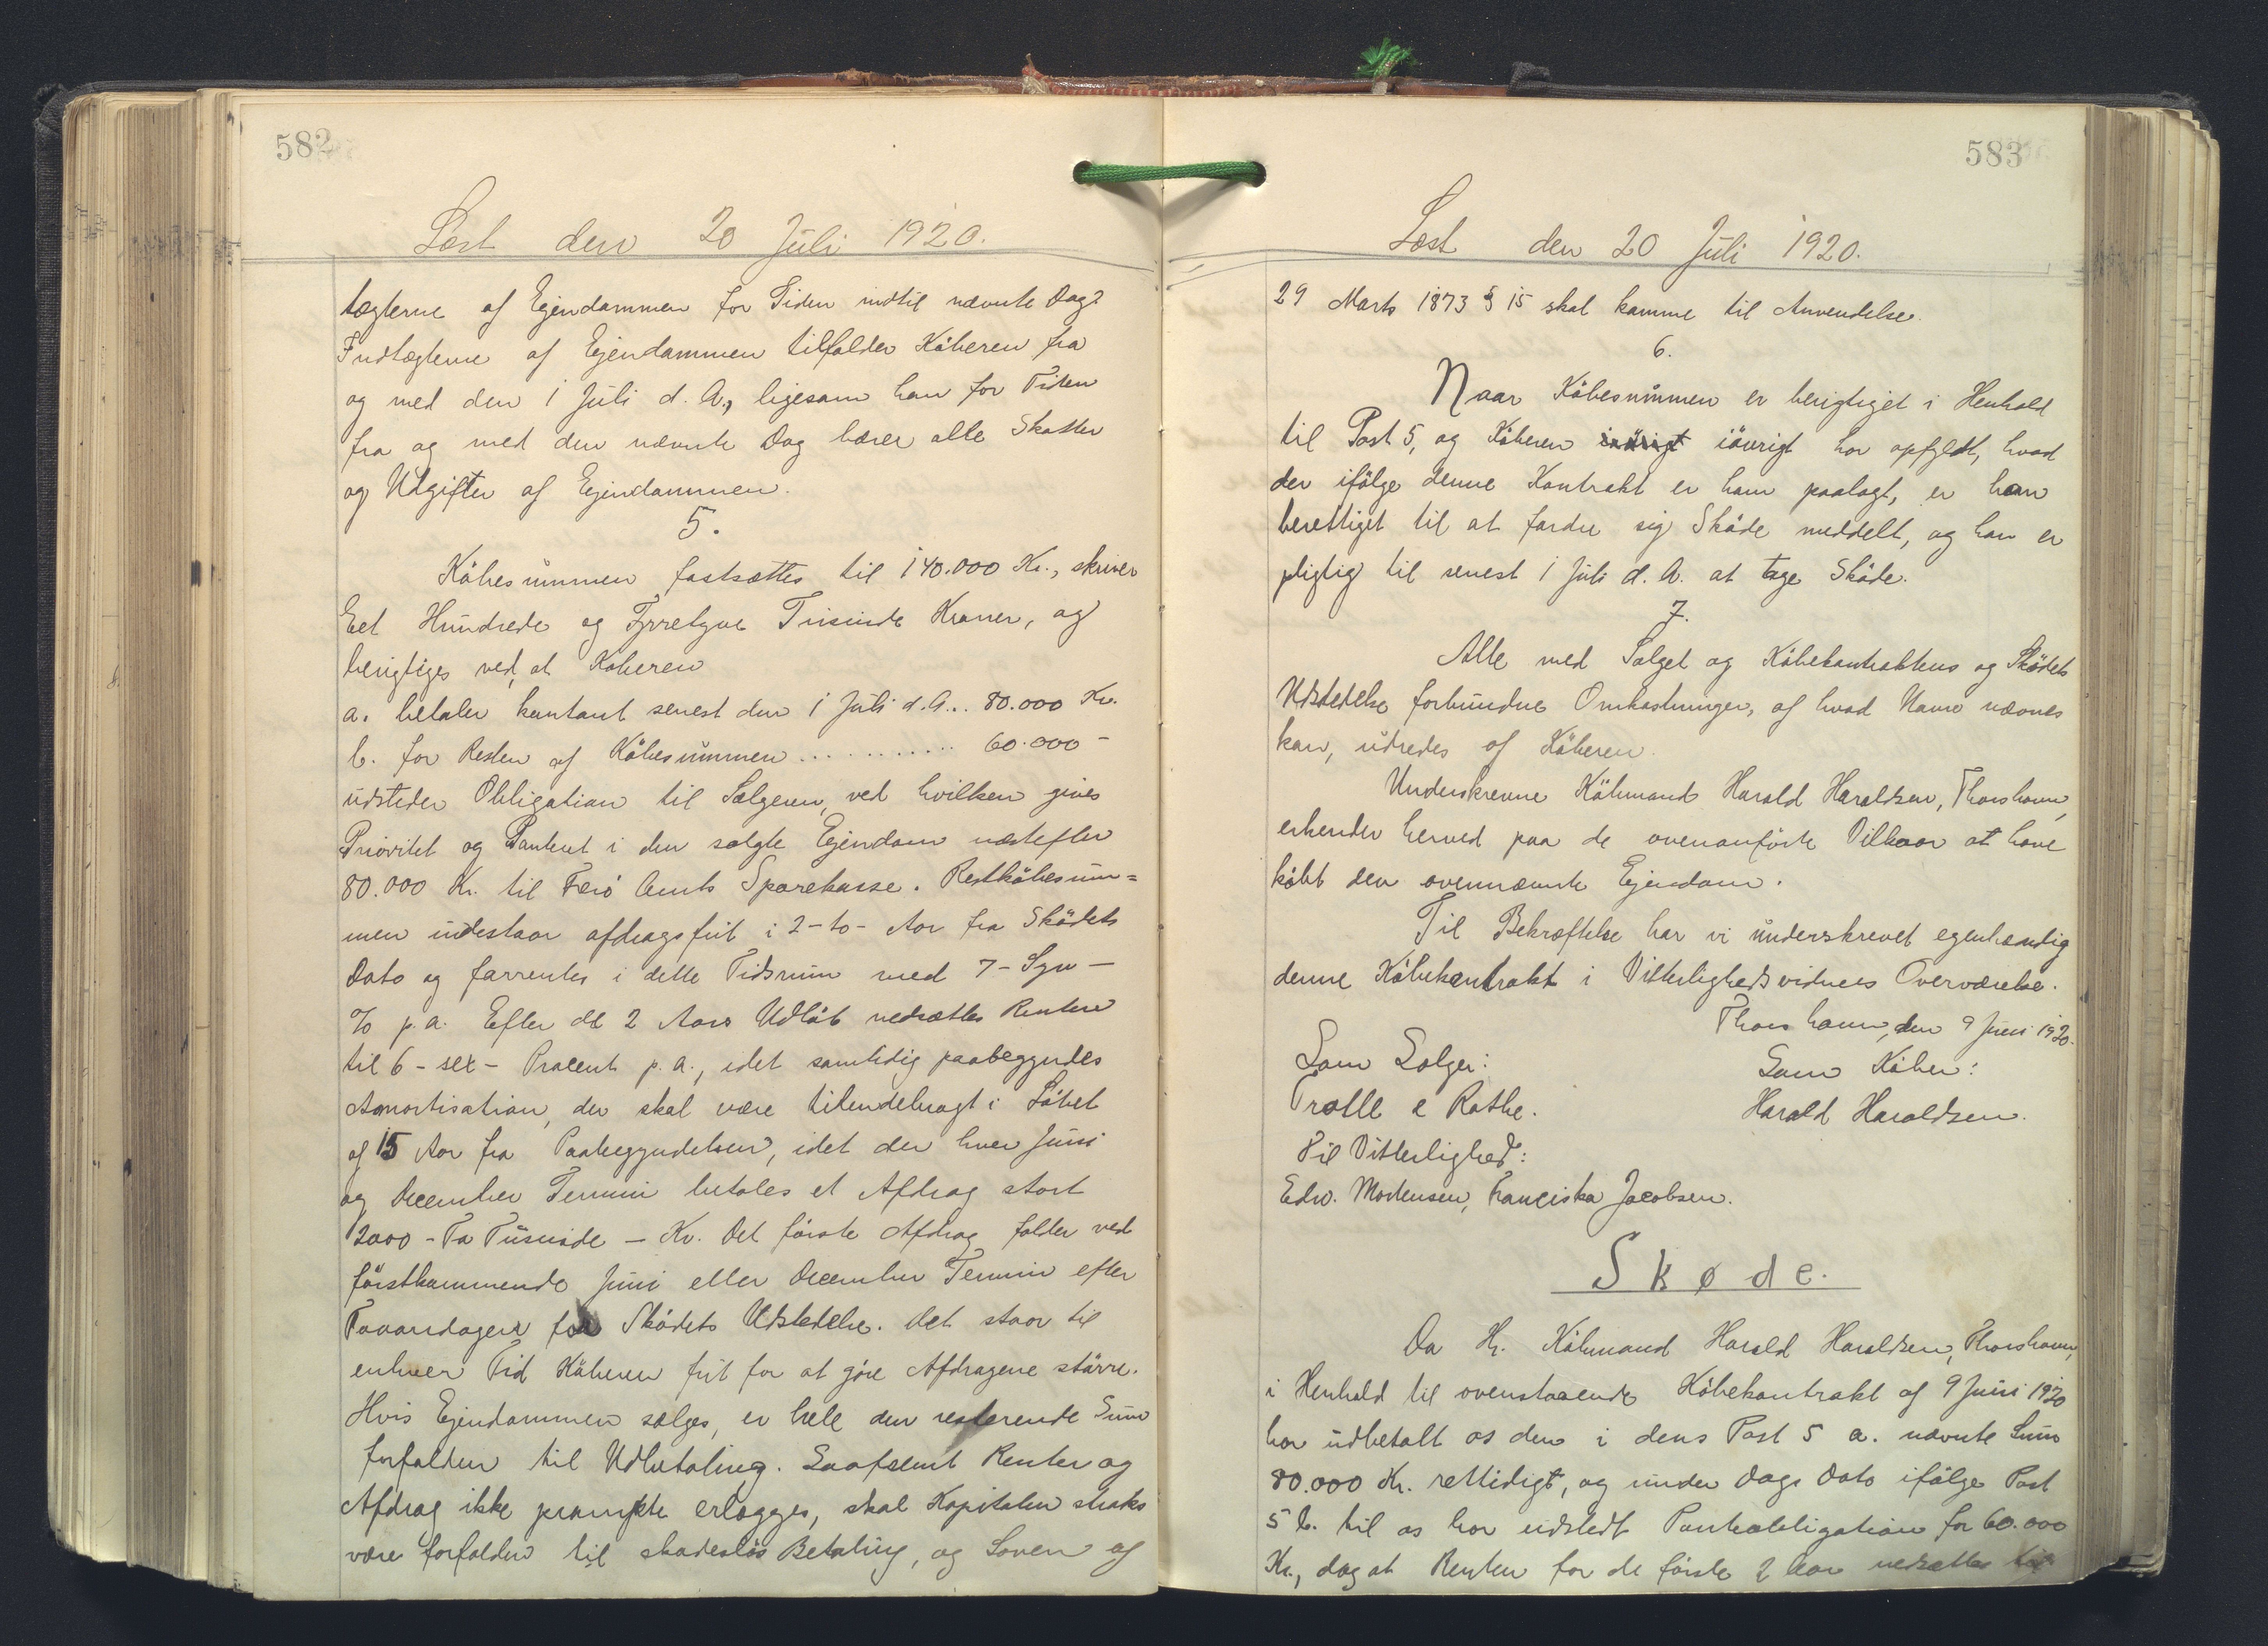 582
Læst den 20 Juli 1920.
tægterne af Ejendommen for Tiden indtil nævnte Dag.
Indtægterne af Ejendommen tilfalder Köberen fra
og med den 1 Juli d. A., ligesom han for Tiden
fra og med den nævnte Dag bærer alle Skatter
og Udgifter af Ejendommen.
5.
Köbesummen fastsættes til 140.000 Kr., skriver
Eet Hundrede og Fyrretyve Tusinde Kroner, og
berigtiges ved, at Köberen
a. betaler kontant senest den 1 Juli d. A... 80.000 Kr.
b. for Resten af Köbesummen ............ 60.000 -
udsteder Obligation til Sælgeren, ved hvilken gives
Prioritet og Panteret i den solgte Ejendom næstefter
80.000 Kr. til Færö Amts Sparekasse. Restköbesum=
men indestaar afdragsfrit i 2 - to - Aar fra Sködets
Dato og forrentes i dette Tidsrum med 7 - Syv -
% p. a. Efter de 2 Aars Udlöb nedsættes Renten
til 6 - sex - Procent p. a., idet samtidig paabegyndes
Amortisation, der skal være tilendebragt i Löbet
af 15 Aar fra Paabegyndelsen, idet der hver Juni
og December Termin betales et Afdrag stort
2000 - To Tusinde - Kr. Det förste Afdrag falder ved
förstkommende Juni eller December Termin efter
Toaarsdagen for Sködets Udstedelse. Det staar til
enhver Tid Köberen frit for at göre Afdragene större.
Hvis Ejendommen sælges, er hele den resterende Sum
forfalden til Udbetaling. Saafremt Renter og
Afdrag ikke prompte erlægges, skal Kapitalen straks
være forfalden til skadeslös Betaling, og Loven af
583
Læst den 20 Juli 1920.
29 Marts 1873 § 15 skal komme til Anvendelse.
6.
Naar Köbesummen er berigtiget i Henhold
til Post 5, og Köberen iövrigt har opfyldt, hvad
der ifölge denne Kontrakt er ham paalagt, er han
berettiget til at fordre sig Sköde meddelt, og han er
pligtig til senest 1 Juli d. A. at tage Sköde.
7.
Alle med Salget og Köbekontraktens og Sködets
Udstedelse forbundne Omkostninger, af hvad Navn nævnes
kan, udredes af Köberen.
Underskrevne Köbmand Harald Haraldsen, Thorshavn,
erkender herved paa de ovenanförte Vilkaar at have
köbt den ovennævnte Ejendom.
Til Bekræftelse har vi underskrevet egenhændig
denne Köbekontrakt i Vitterlighedsvidners Overværelse.
Thorshavn, den 9 Juni 1920.
Som Sælger: Som Köber:
Trolle & Rothe. Harald Haraldsen.
Til Vitterlighed:
Edw. Mortensen, Franciska Jacobsen.
Skøde.
Da Hr. Köbmand Harald Haraldsen, Thorshavn,
i Henhold til ovenstaaende Köbekontrakt af 9 Juni 1920
har udbetalt os den i dens Post 5 a. nævnte Sum
80.000 Kr. rettidigt, og under Dags Dato ifölge Post
5 b. til os har udstedt Panteobligation for 60.000
Kr., dog at Renten for de förste 2 Aar nedsættes til